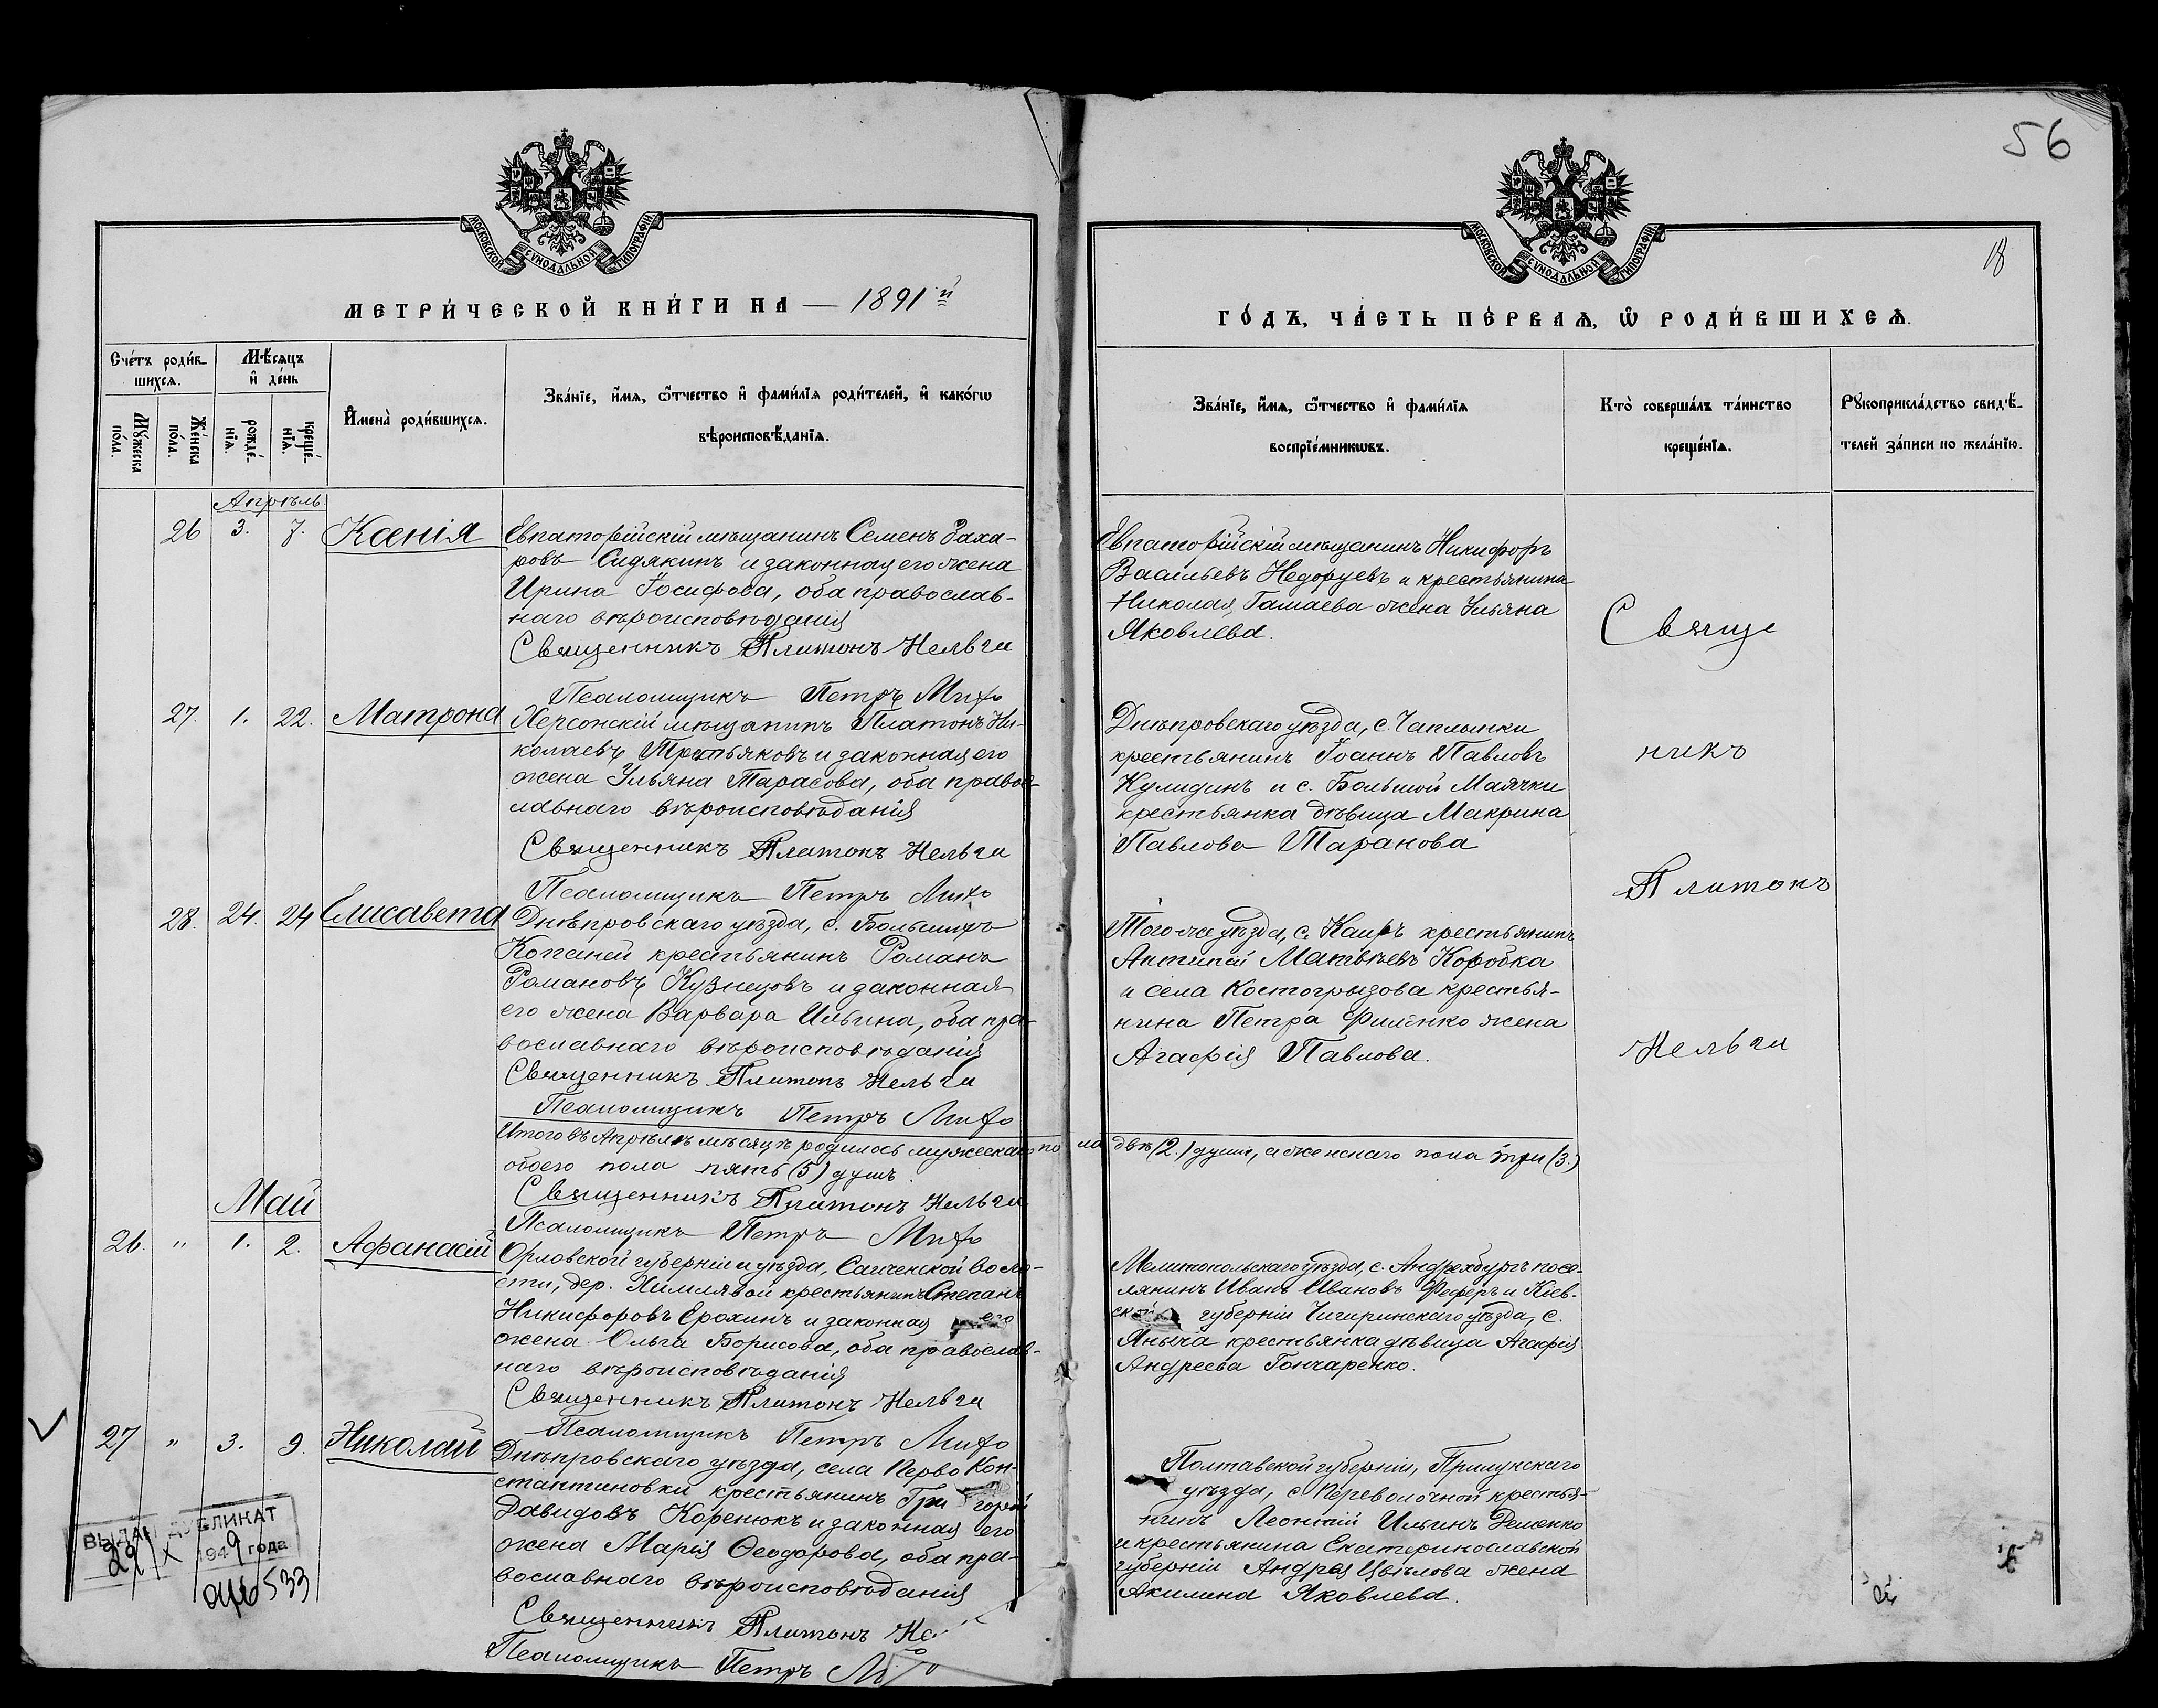 56
18
МОСКОВСКОЙ СѴНОДАЛЬНОЙ ТИПОГРАФІИ
МОСКОВСКОЙ СѴНОДАЛЬНОЙ ТИПОГРАФІИ
МЕТРИ́ЧЕСКОЙ КНИ́ГИ НА — 1891 й
ГО́ДЪ, ЧА́СТЬ ПЕ́РВАѦ, Ѡ҆ РОДИ́ВШИХСѦ.
Сче́тъ роди́в-
шихсѧ.
Мѣ́сѧцъ
и҆ де́нь
Мꙋ́жеска
по́ла.
Же́нска
по́ла.
рожде́-
нїѧ.
креще́-
нїѧ.
И҆мена̀ роди́вшихсѧ.
Зва́нїе, и҆́мѧ, ѻ҆́тчество и҆ фами́лїѧ роди́телей, и҆ како́гѡ
вѣроисповѣ́данїѧ.
Зва́нїе, и҆́мѧ, ѻ҆́тчество и҆ фами́лїѧ
воспрїе́мникѡвъ.
Кто̀ соверша́лъ та́инство
креще́нїѧ.
Рꙋкоприкла́дство свидѣ́-
телей за́писи по жела́нїю.
Апрѣль
26 3. 7. Ксенія
Евпаторійскій мѣщанинъ Семенъ Заха-
ровъ Сидякинъ и законная его жена
Ирина Іосифова, оба православ-
наго вѣроисповѣданія
Священникъ Платонъ
Псаломщикъ Петръ
Евпаторійскій мѣщанинъ Никифоръ
Васильевъ Недоруевъ и крестьянина
Николая Гамаева жена Ульяна
Яковлева.
27. 1. 22. Матрона
Херсонскій мѣщанинъ Платонъ Ни-
колаевъ Третьяковъ и законная его
жена Ульяна Тарасова, оба правос-
лавнаго вѣроисповѣданія
Священникъ Платонъ
Псаломщикъ Петръ
Днѣпровскаго уѣзда, с. Чаплынки
крестьянинъ Іоаннъ Павловъ
Кулидинъ и с. Большой Маячки
крестьянка дѣвица Макрина
Павлова Таранова
28. 24. 24 Елисавета
Днѣпровскаго уѣзда, с. Большихъ
Копаней крестьянинъ Романъ
Романовъ Кузнецовъ и законная
его жена Варвара Ильина, оба пра-
вославнаго вѣроисповѣданія
Священникъ Платонъ
Псаломщикъ Петръ
Того же уѣзда, с. Каиръ крестьянинъ
Антипій Матвѣевъ Коробка
и села Костогрызова крестья-
нина Петра Филенко жена
Агафія Павлова.
Свяще
никъ
Платонъ
Итого въ Апрѣлѣ мѣсяцѣ родилось мужескаго пола двѣ (2.) души, а женскаго пола три (3.)
обоего пола пять (5) душъ.
Священникъ Платонъ
Псаломщикъ Петръ
Май
26. " 1. 2. Афанасій
Орловской губерніи и уѣзда, воло-
сти, дер. крестьянинъ Степанъ
Никифоровъ Ерохинъ и законная его
жена Ольга Борисова, оба православ-
наго вѣроисповѣданія
Священникъ Платонъ
Псаломщикъ Петръ
Мелитопольскаго уѣзда, с. Андребургъ посе-
лянинъ Иванъ Ивановъ Феферъ и Кіев-
ской губерніи Чигиринскаго уѣзда, с.
Яныча крестьянка дѣвица Агафія
Андреева Гончаренко.
27 " 3. 9. Николай
Днѣпровскаго уѣзда, села Перво Кон-
стантиновки крестьянинъ Григорій
Давидовъ Коренюкъ и законная его
жена Марія Ѳеодорова, оба пра-
вославнаго вѣроисповѣданія
Священникъ Платонъ
Псаломщикъ Петръ
Полтавской губерніи, Прилукскаго
уѣзда, с. Переволочной крестья-
нинъ Леонтій Ильинъ Деменко
и крестьянина Екатеринославской
губерніи Андрея Цвѣлова жена
Акилина Яковлева.
ВЫДАН ДУБЛИКАТ
29 X 1949 года
533